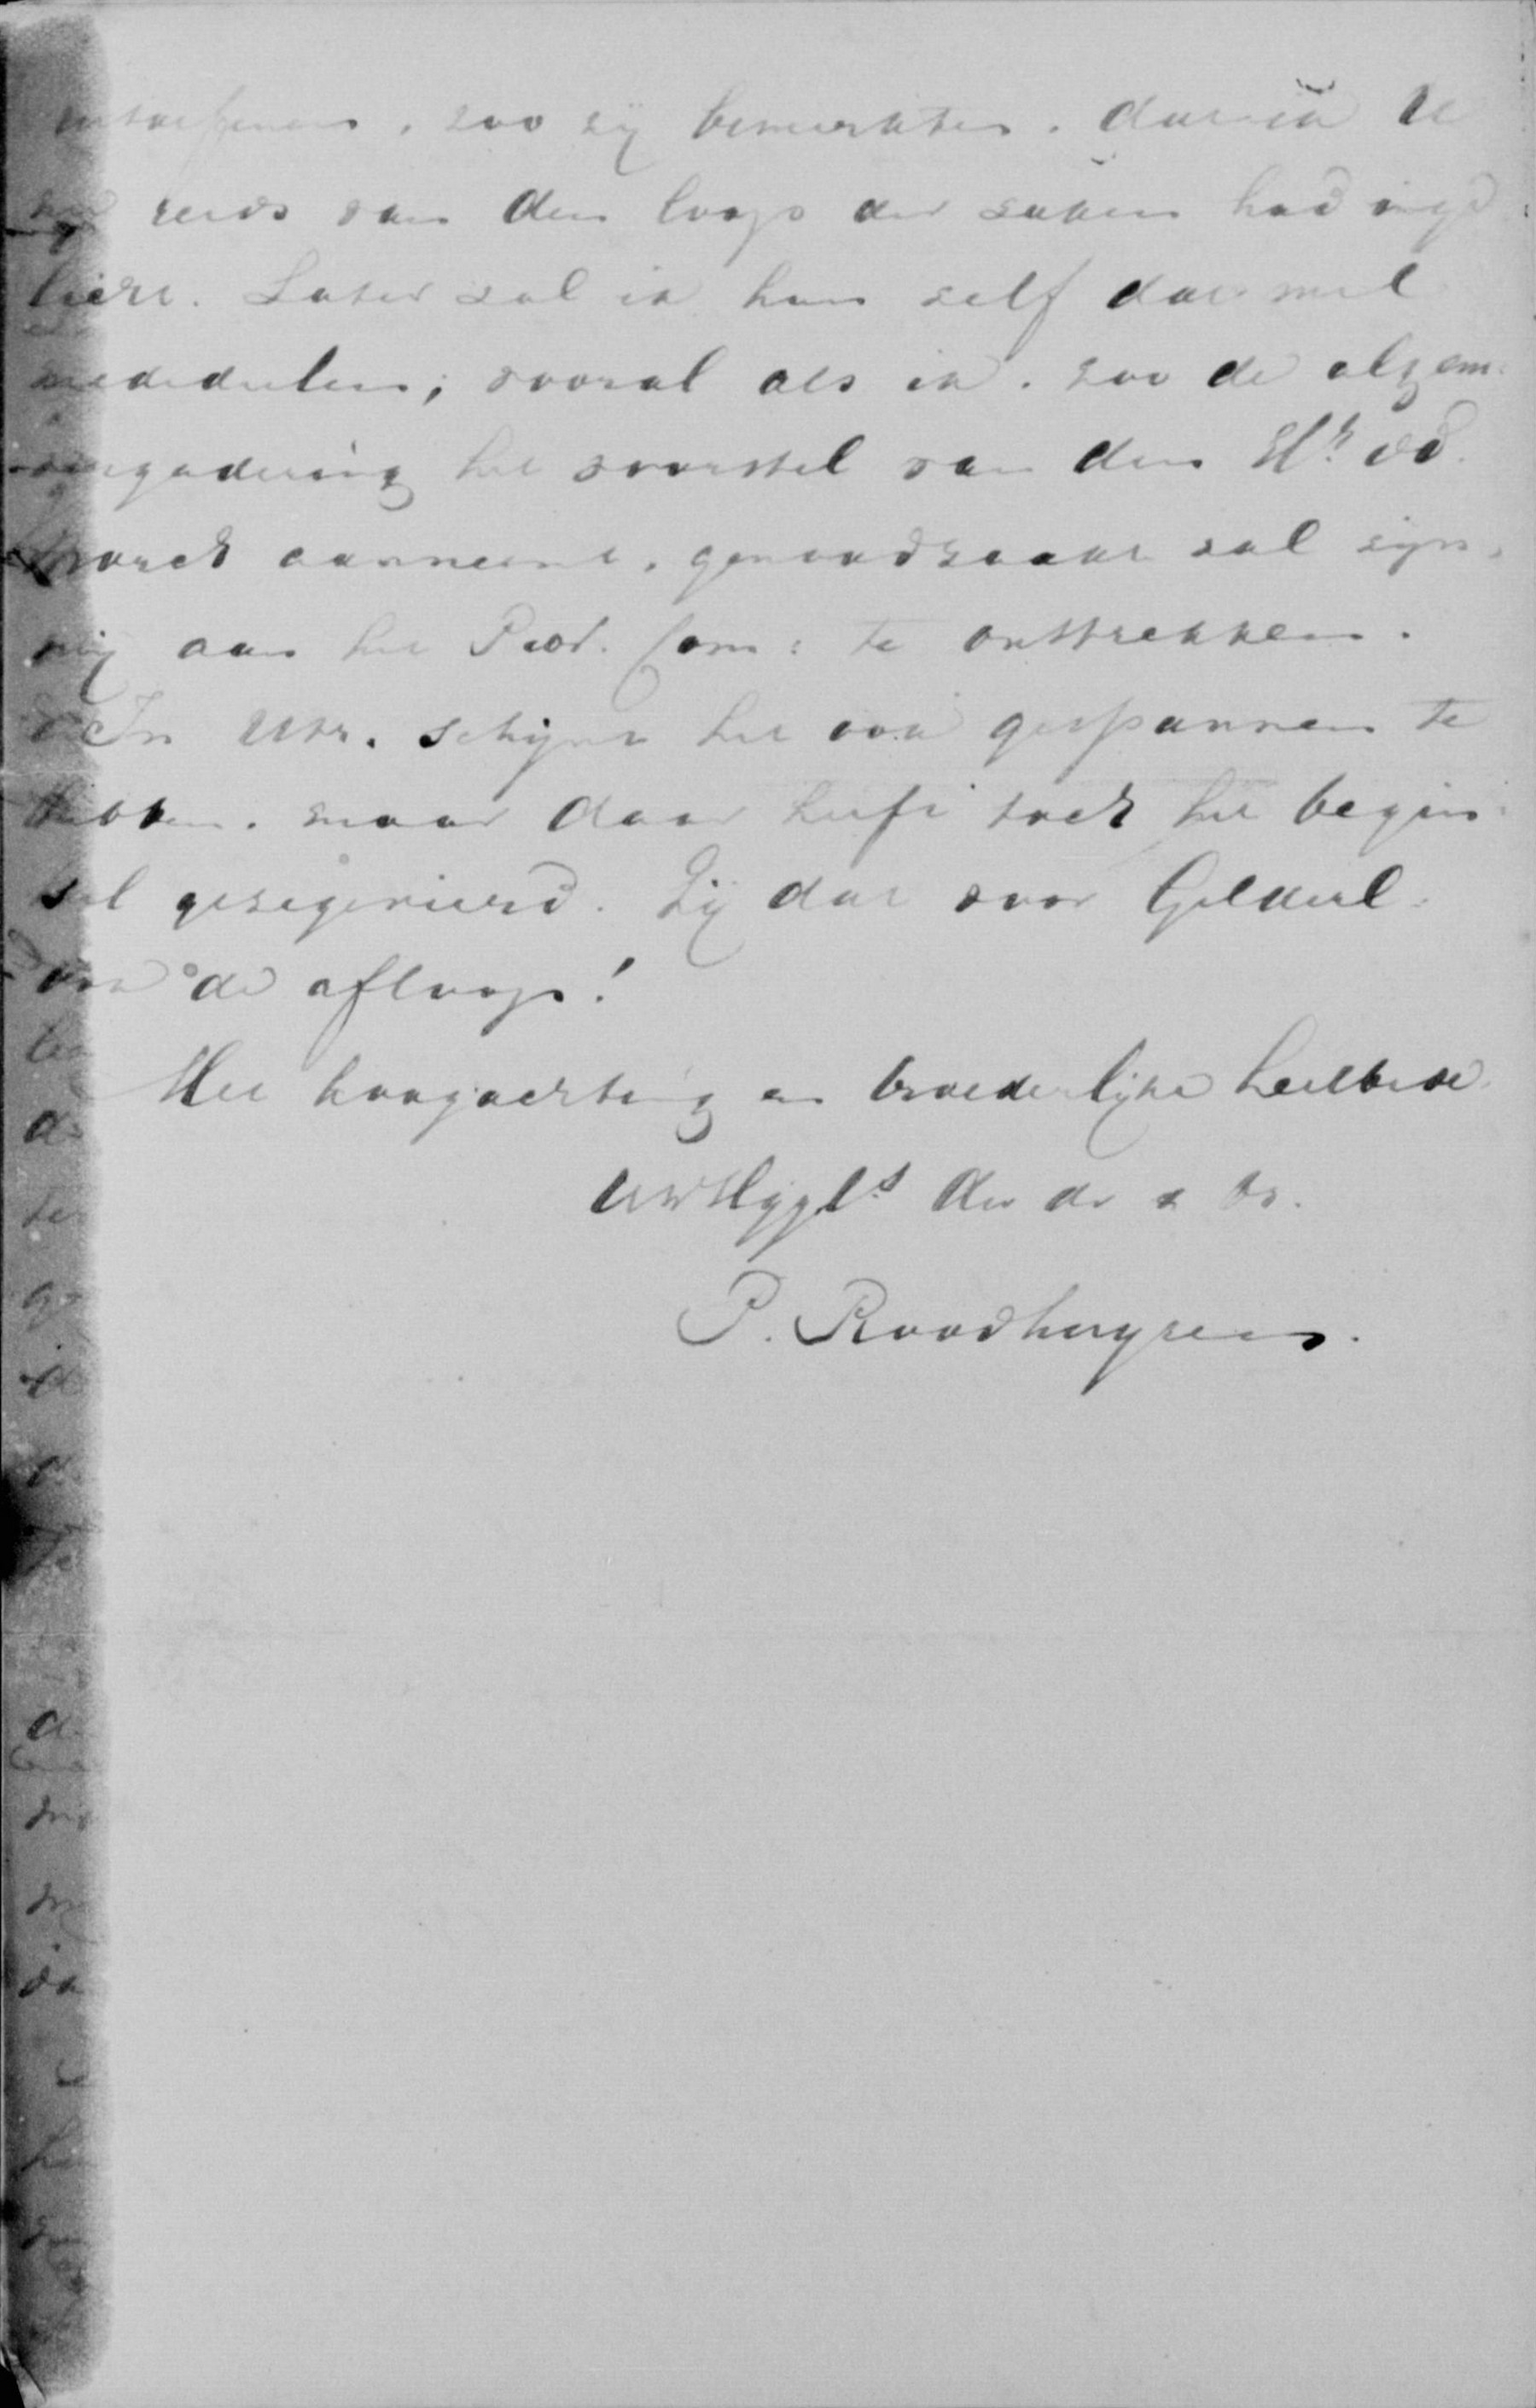 zoo zij bemerkten, dat ik U
reeds van den loop der zaken had inge
licht. Later zal ik hem zelf dat mee
mededeelen; vooral als ik, zoo de algem:
vergadering het voorstel van den Hr. vd.
aanneemt, genoodzaakt zal zijn,
mij aan het Prov. Com: te onttrekken.
In Utr. schijnt het ook gespannen te
hebben, maar daar heeft toch het begin:
sel gezegevierd. Zij dat voor Gelderl.
ook de afloop!
Met hoogachting en broederlijke heilbede
UwHggl.s dw dr & br.
P. Roodhuyzen.